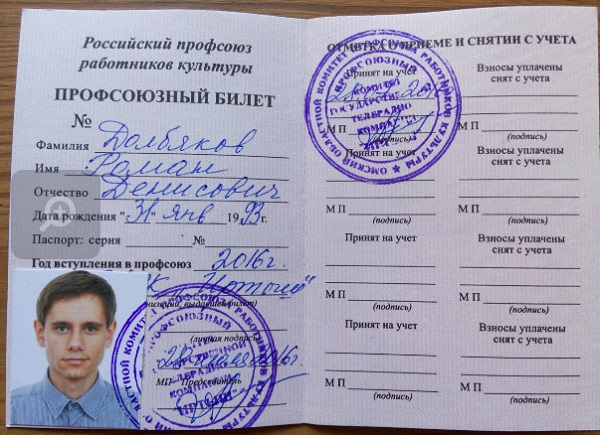 Российский профсоюз
работников культуры
ПРОФСОЮЗНЫЙ БИЛЕТ
№
Фамилия Долбяков
Имя Роман
Отчество Денисович
Дата рождения "31" янв 1993г.
Паспорт: серия № 
Год вступления в профсоюз 2016г.
"Иртыш"
выдавшей билет)
(личная подпись)
2016г.
МП Председатель
ПРОФСОЮЗНЫЙ
ТЕЛЕРАДИО
КОМПАНИИ
ИРТЫШ
ОТМЕТКА О ПРИЕМЕ И СНЯТИИ С УЧЕТА
Принят на учет
Взносы уплачены
снят с учета
М П
М П
(подпись)
ОМСКИЙ ОБЛАСТНОЙ КОМИТЕТ ПРОФСОЮЗА РАБОТНИКОВ КУЛЬТУРЫ
ПРОФСОЮЗНЫЙ
КОМИТЕТ
ГОСУДАРСТВ
ТЕЛЕРАДИО
КОМПАНИИ
Принят на учет
Взносы уплачены
снят с учета
М П
(подпись)
М П
(подпись)
Принят на учет
Взносы уплачены
снят с учета
М П
(подпись)
М П
(подпись)
Принят на учет
Взносы уплачены
снят с учета
М П
(подпись)
М П
(подпись)